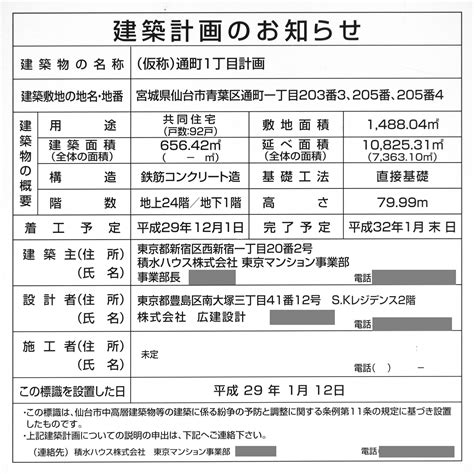 建築計画のお知らせ
建築物の名称 （仮称）通町1丁目計画
建築敷地の地名・地番 宮城県仙台市青葉区通町一丁目203番3、205番、205番4
建築物の概要
用途 共同住宅 敷地面積 1,488.04㎡
（戸数:92戸）
建築面積 656.42㎡ 延べ面積 10,825.31㎡
（全体の面積） （ － ㎡） （全体の面積） （7,363.10㎡）
構造 鉄筋コンクリート造 基礎工法 直接基礎
階数 地上24階／地下1階 高さ 79.99m
着工予定 平成29年12月1日 完了予定 平成32年1月末日
建築主（住所） 東京都新宿区西新宿一丁目20番2号
（氏名） 積水ハウス株式会社 東京マンション事業部
事業部長 電話
設計者（住所） 東京都豊島区南大塚三丁目41番12号 S.Kレジデンス2階
（氏名） 株式会社 広建設計
施工者（住所） 未定
（氏名） 電話（ ） －
この標識を設置した日 平成 29 年 1月 12日
・この標識は、仙台市中高層建築物等の建築に係る紛争の予防と調整に関する条例第11条の規定に基づき設置
したものです。
・上記建築計画についての説明の申出は、下記へご連絡下さい。
（連絡先）積水ハウス株式会社 東京マンション事業部 電話